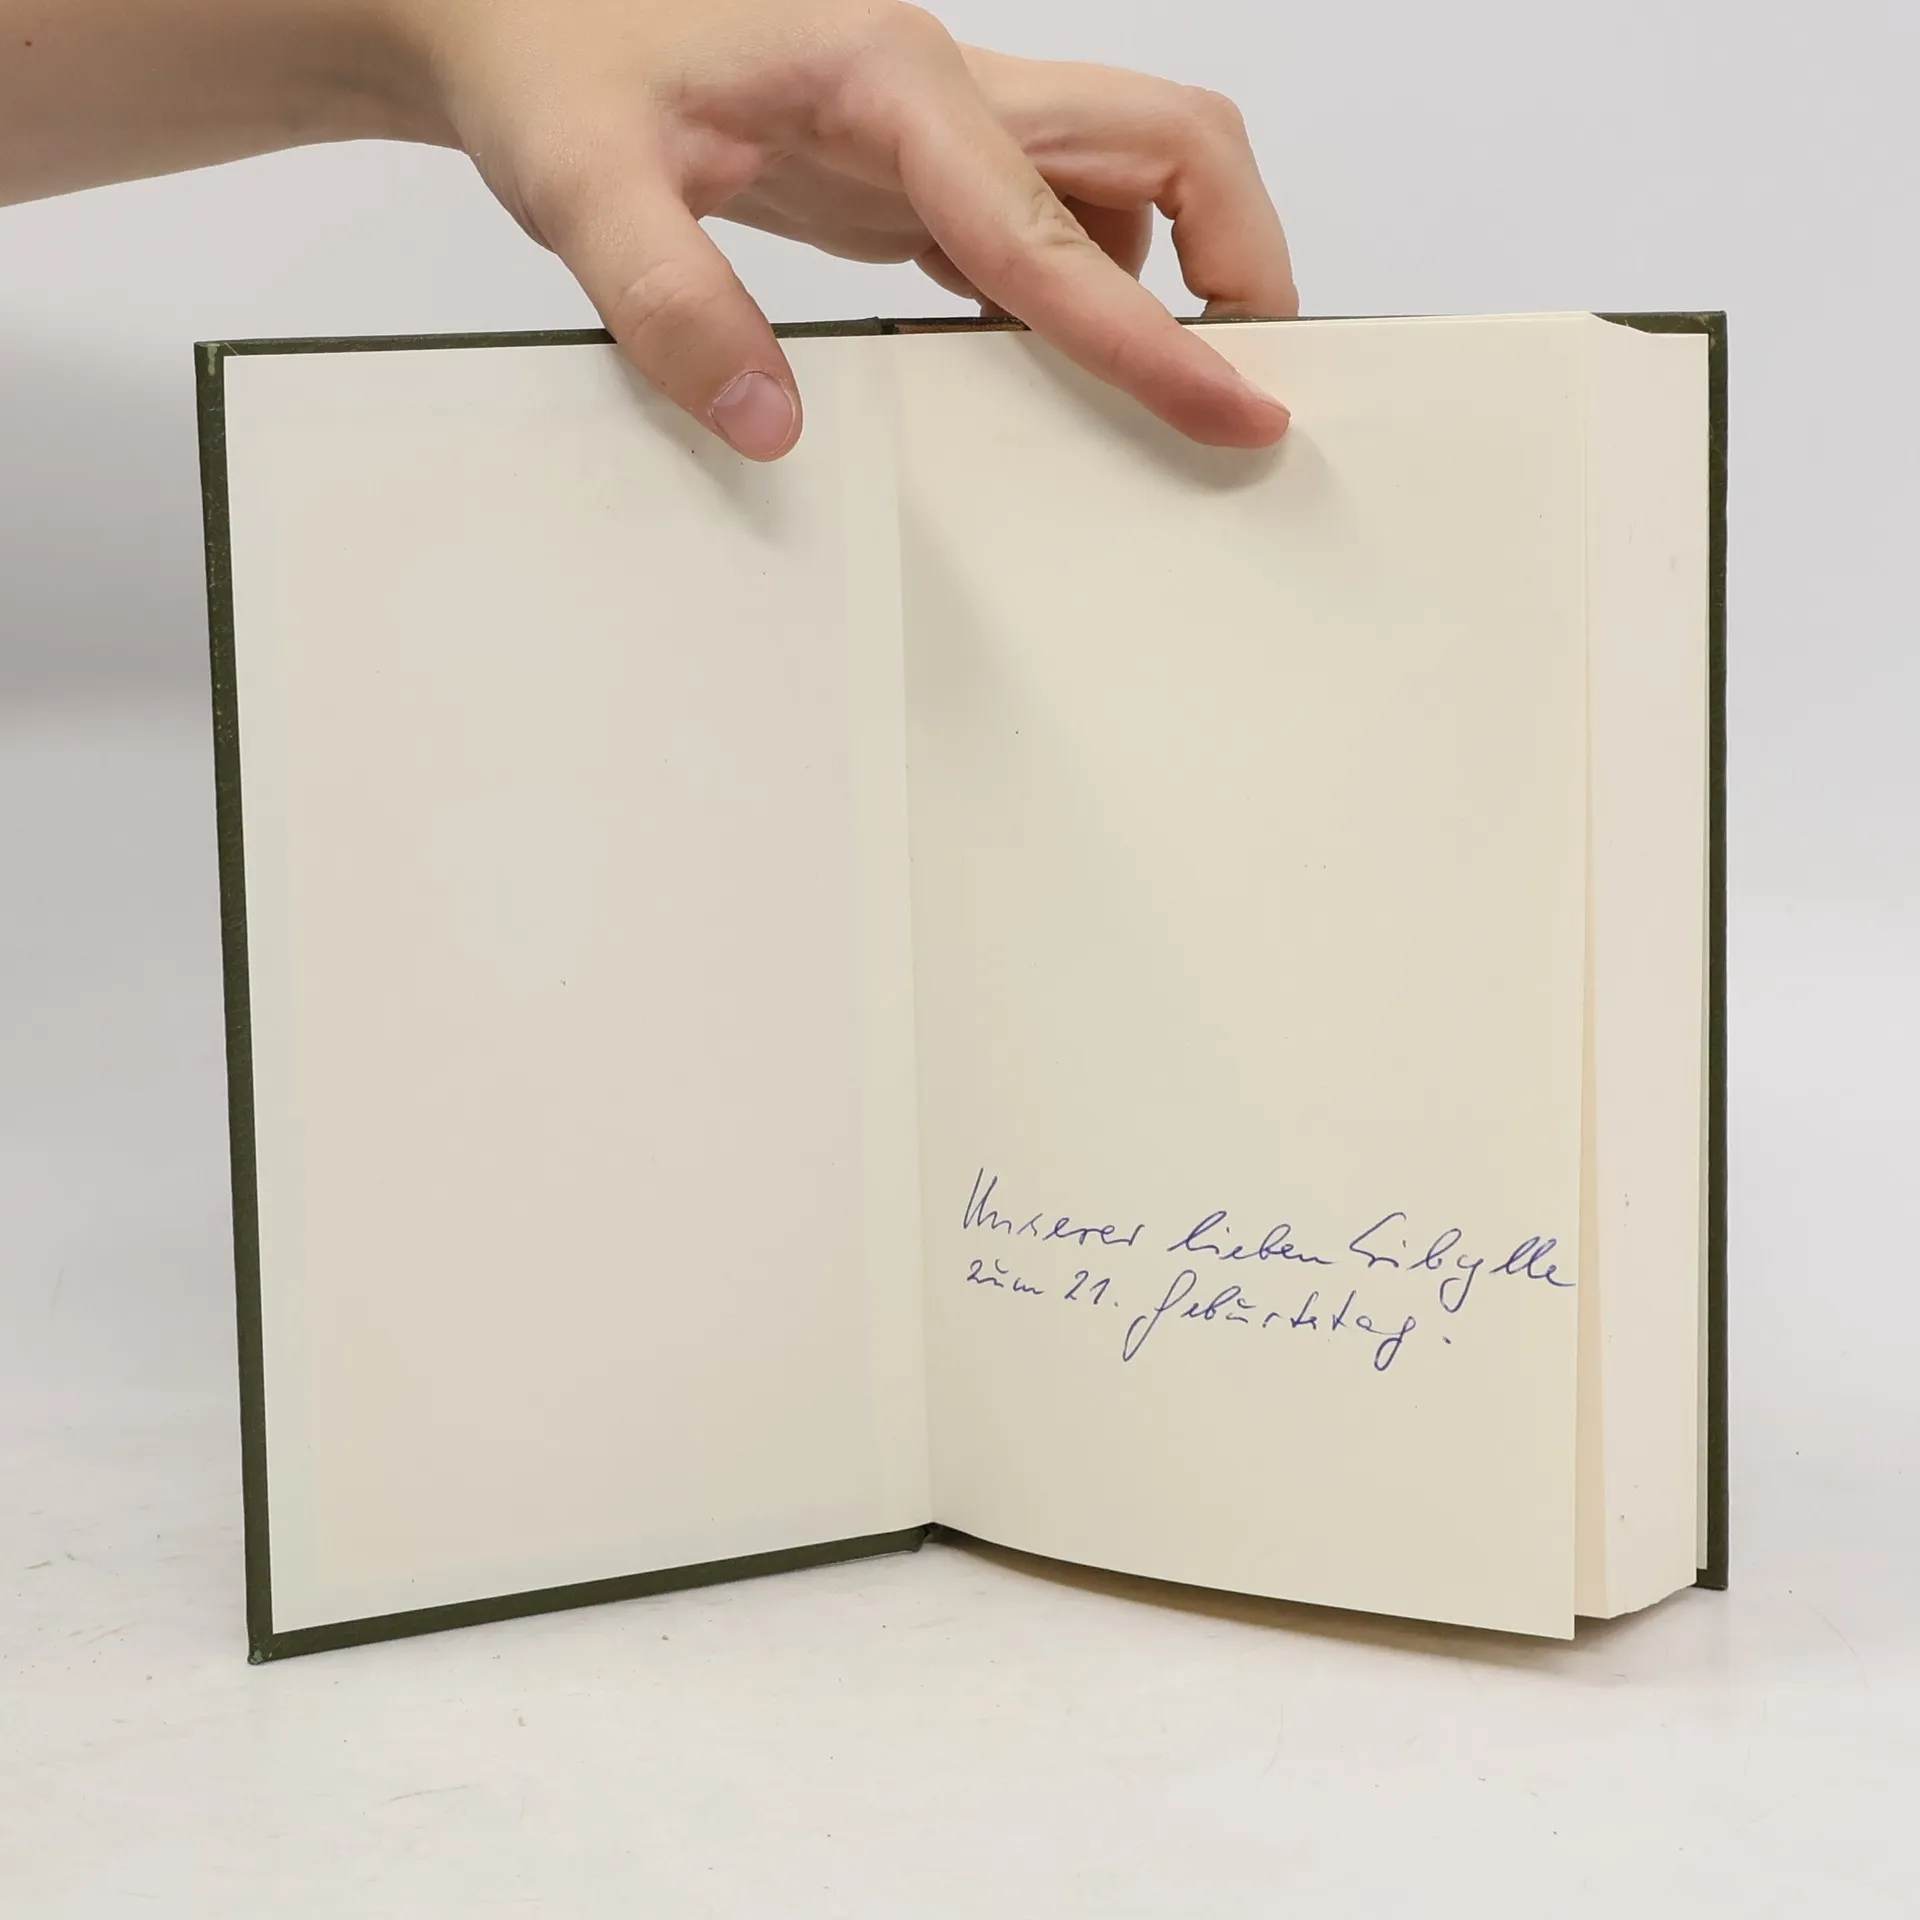 Unserer lieben Sibylle
zum 21. Geburtstag.